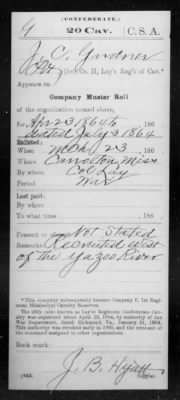 (CONFEDERATE.)
G 20 Cav. C. S. A.
J. C. Gardner
Pvt (Lay) Co. H, Lay's Reg't of Cav.*
Appears on
Company Muster Roll
of the organization named above,
for Apr 23 1864 to , 186
dated July 3 1864
Enlisted:
When Mch 23 , 186
Where Carrolton, Miss
By whom Col Lay
Period War
Last paid:
By whom
To what time , 186
Present or Not Stated
Remarks: Recruited West
of the Yazoo River
*This company subsequently became Company F, 1st Regiment Mississippi Cavalry Reserves.
The 20th (also known as Lay's) Regiment Confederate Cavalry was organized about April 23, 1864, by authority of the War Department, dated Richmond, Va., January 21, 1864. This authority was revoked early in 1865, and the
Book mark:
J. B. Hyatt
(642) Copyist.